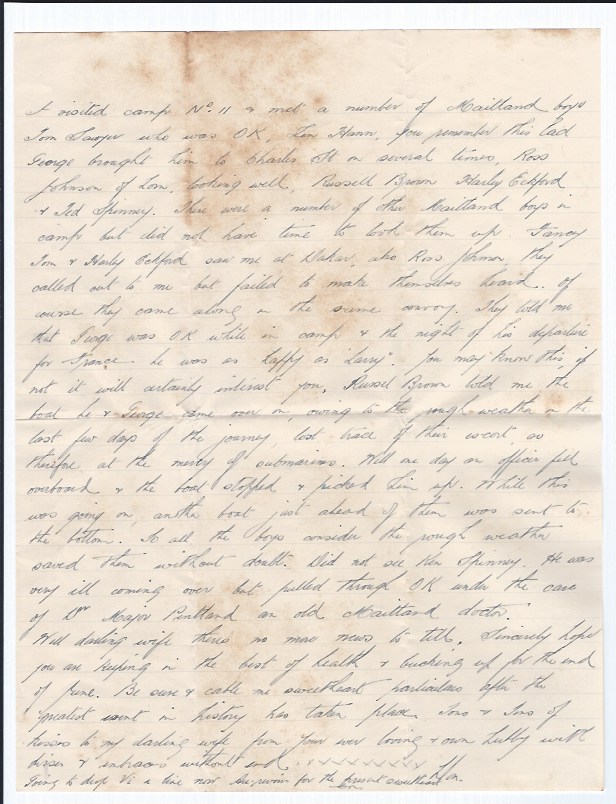 I visited camp No. 11 & met a number of Maitland boys
Tom Sawyer who was OK, Len Hann, you remember this lad
George brought him to Charles St on several times, Ross
Johnson of Lorn, looking well, Russell Brown Harley Eckford
& Ted Spinney. There were a number of other Maitland boys in
camp but did not have time to look them up. Fancy
Tom & Harley Eckford saw me at Dakar, also Ross Johnson, they
called out to me but failed to make themselves heard. Of
course they came along in the same convoy. They told me
that George was OK while in camp & the night of his departure
for France he was as happy as "Larry". You may know this, if
not it will certainly interest you, Russel Brown told me the
boat he & George came over on, owing to the rough weather in the
last few days of the journey, lost trace of their escort, so
therefore at the mercy of submarines. Well one day an officer fell
overboard & the boat stopped & picked him up. While this
was going on, another boat just ahead of them was sent to
the bottom. So all the boys consider the rough weather
saved them without doubt. Did not see Ken Spinney. He was
very ill coming over but pulled through OK under the care
of Dr Major Pentland an old Maitland doctor.
Well darling wife theres no more news to tell. Sincerely hope
you are keeping in the best of health & bucking up for the end
of June. Be sure & cable me sweetheart particulars after the
greatest event in history has taken place. Tons & Tons of
kisses to my darling wife from your ever loving & own hubby with
kisses & embraces without end. x x x x x x x x
Going to drop Vi a line now for the present sweetheart